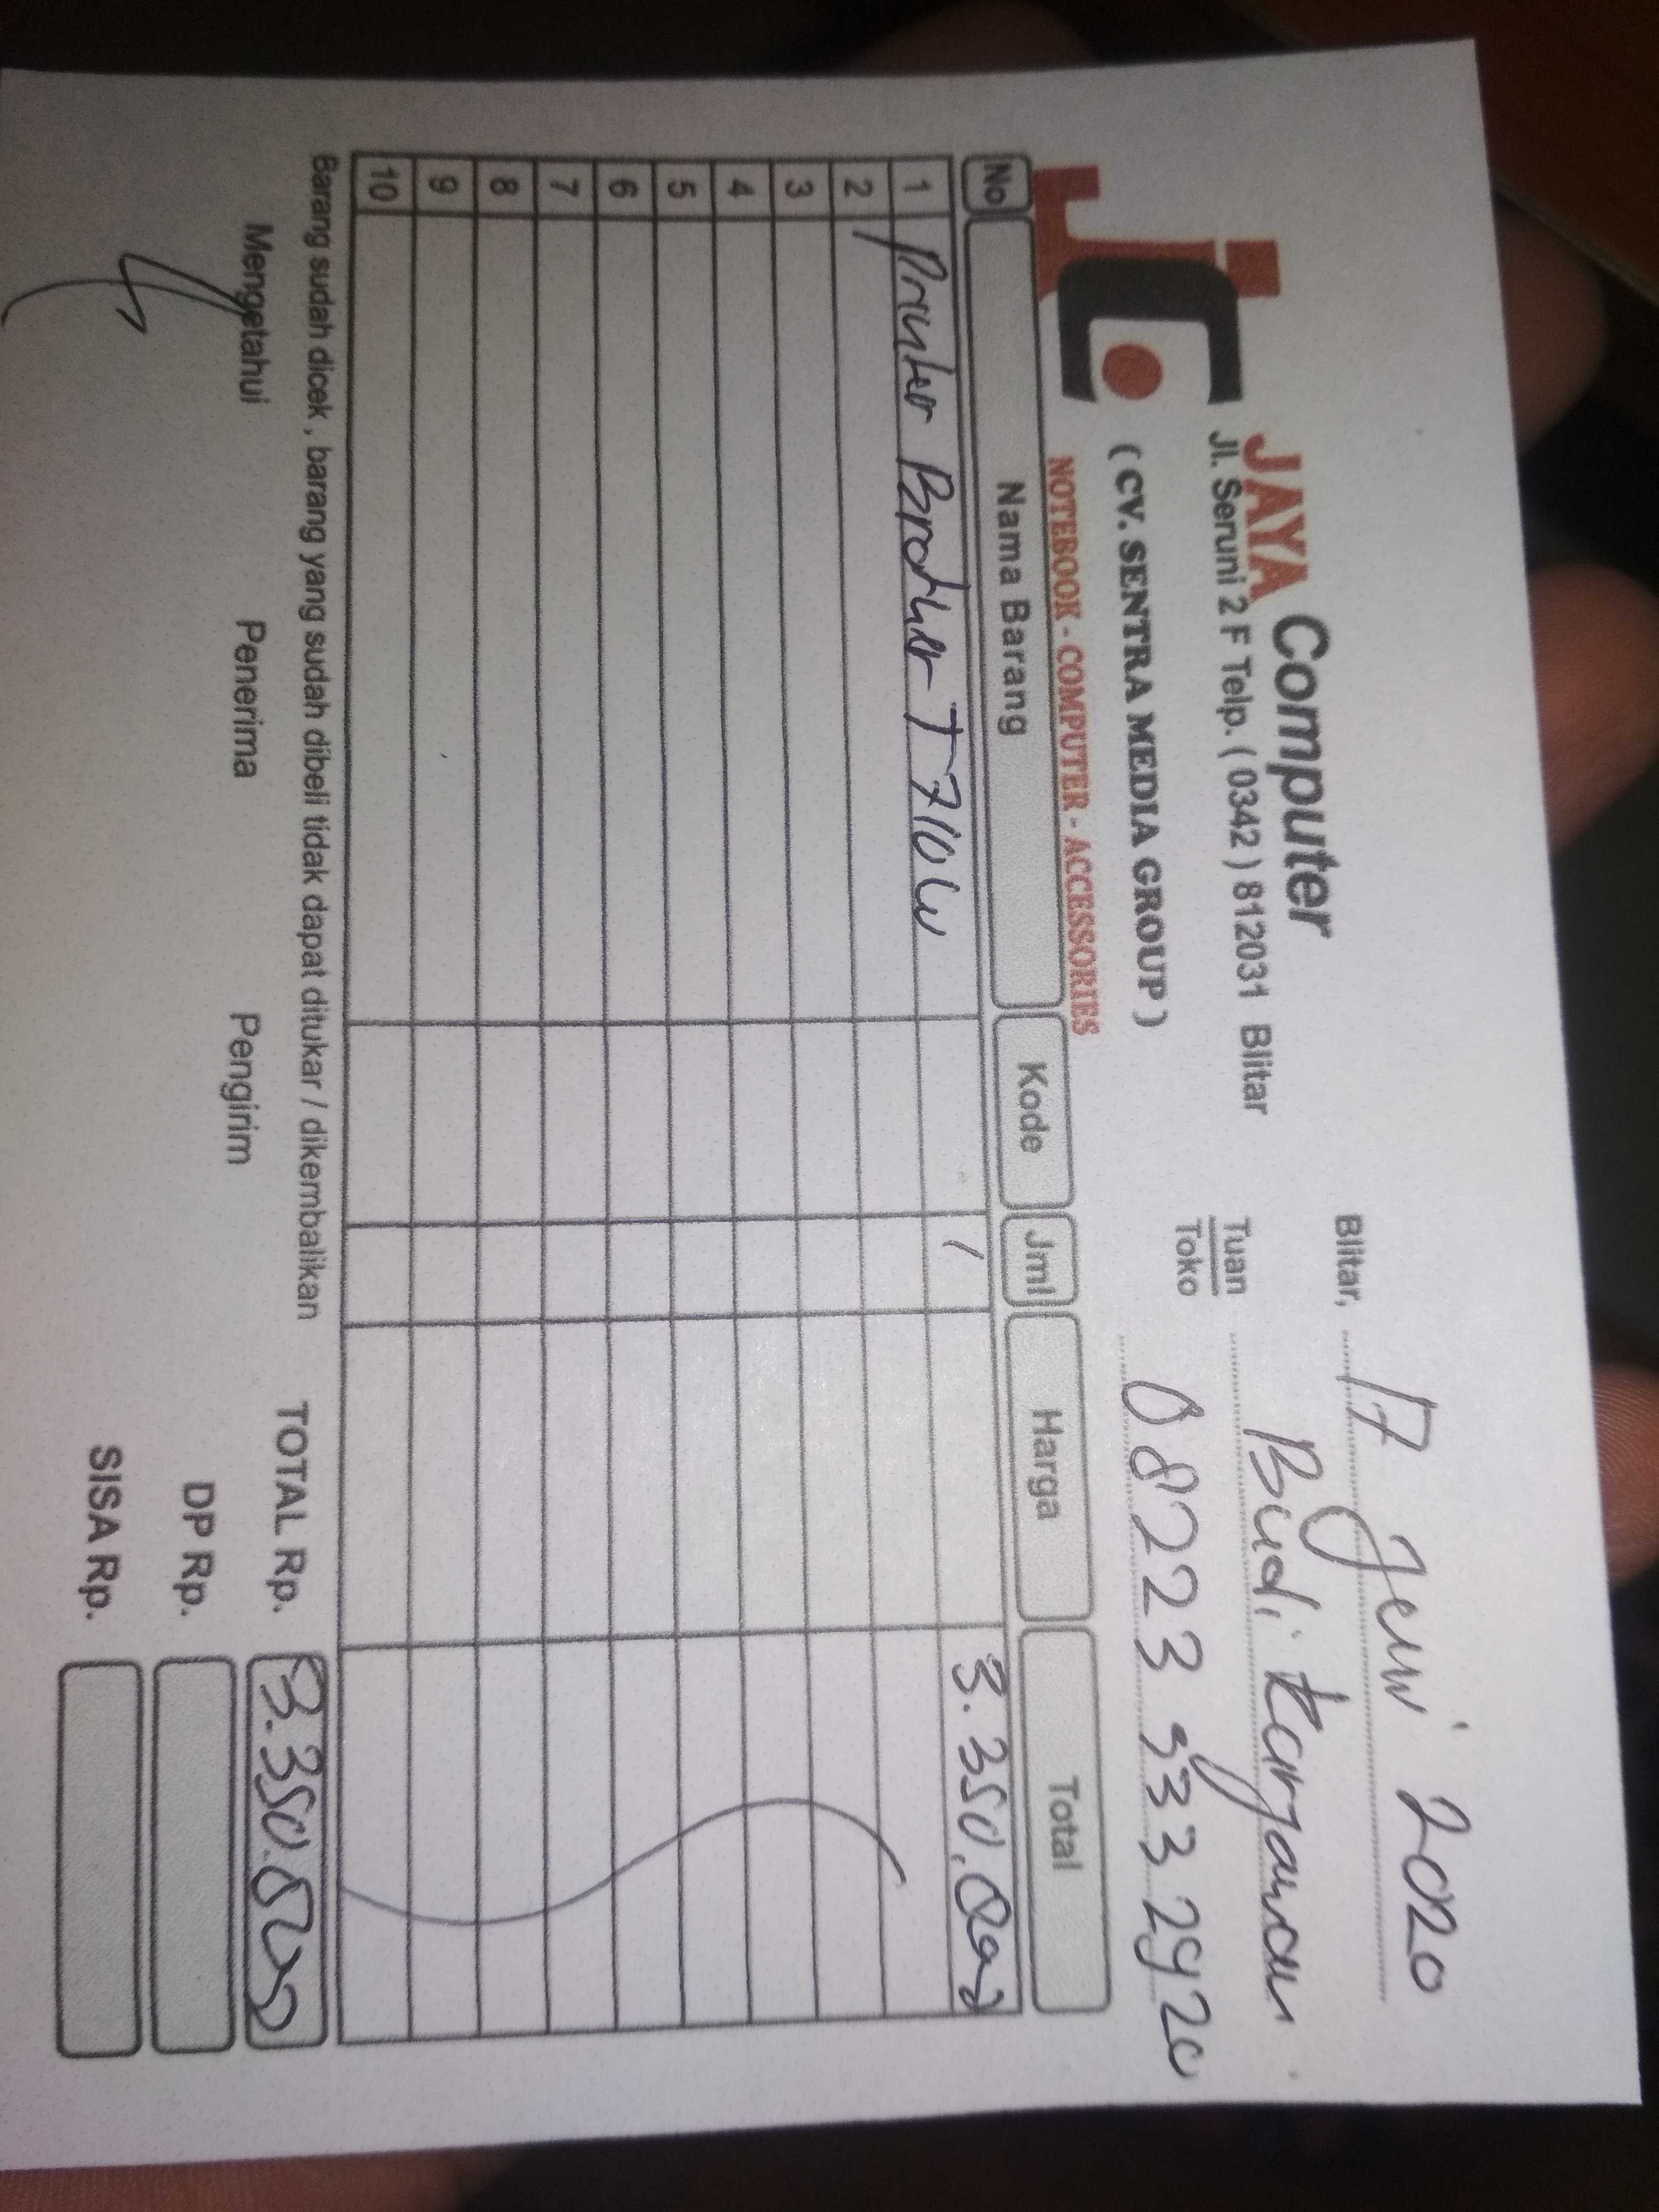 JC
JAYA Computer
Jl. Seruni 2 F Telp. ( 0342 ) 812031 Blitar
( CV. SENTRA MEDIA GROUP )
NOTEBOOK - COMPUTER - ACCESSORIES
Blitar, 17 Juni 2020
Tuan Budi
Toko 08223 333 2920
No Nama Barang Kode Jml Harga Total
1 Printer Brother T 710 W 1 3.350.000
2
3
4
5
6
7
8
9
10
Barang sudah dicek , barang yang sudah dibeli tidak dapat ditukar / dikembalikan
TOTAL Rp. 3.350.000
Mengetahui Penerima Pengirim
DP Rp.
SISA Rp.